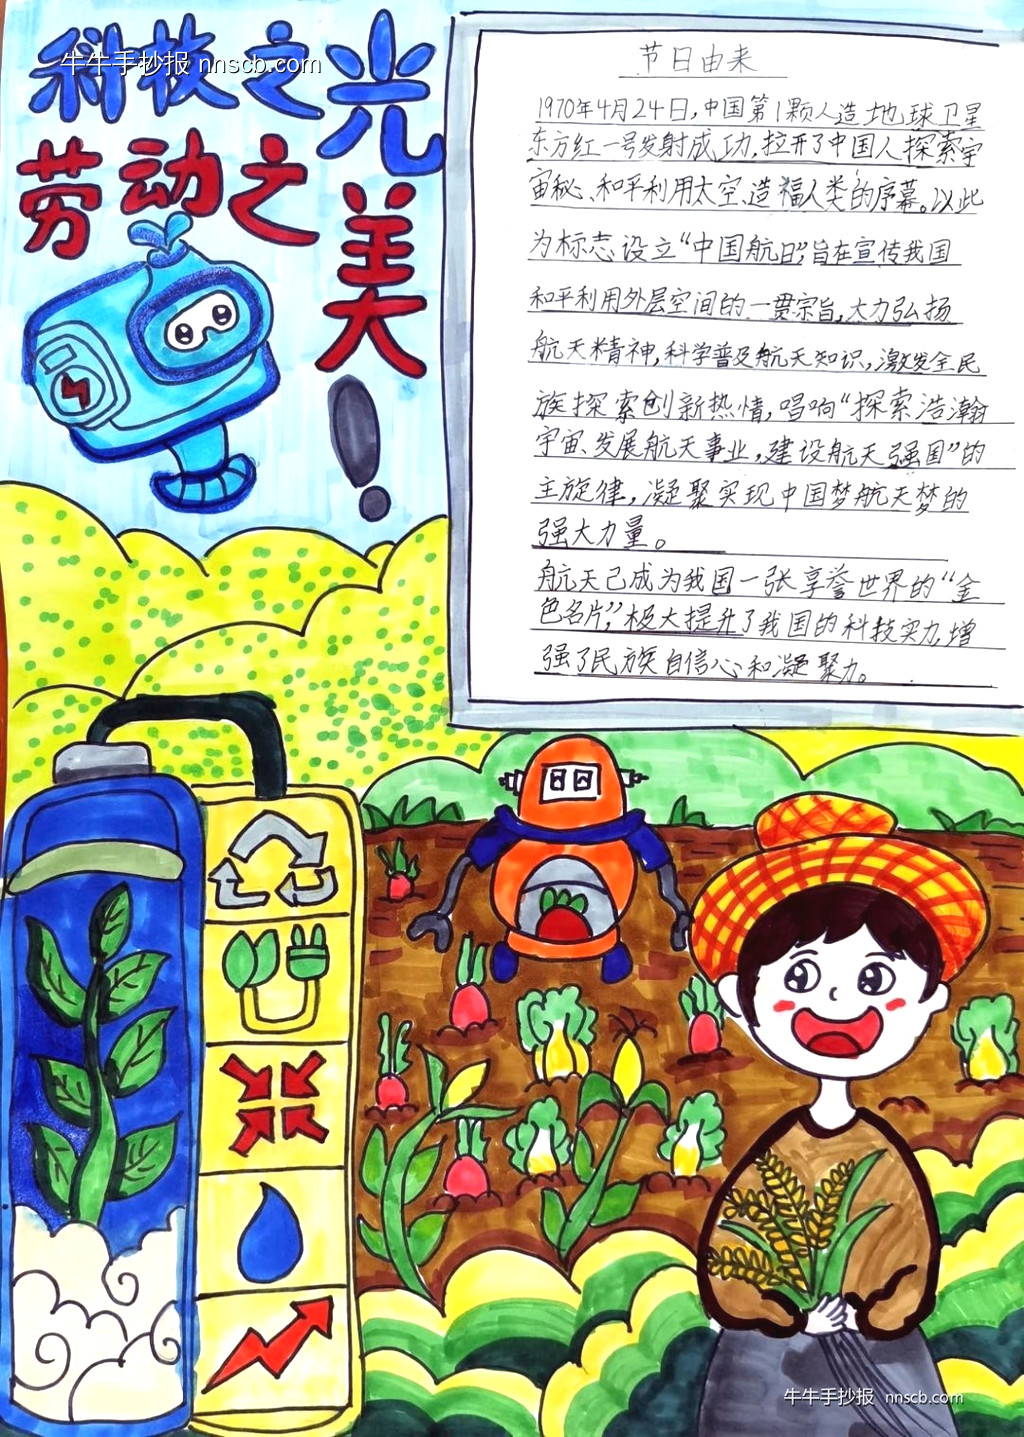 科技之光
牛牛手抄报 nnscb.com
劳动之美!
节日由来
1970年4月24日,中国第1颗人造地球卫星
东方红一号发射成功,拉开了中国人探索宇
宙秘、和平利用太空、造福人类的序幕。以此
为标志设立“中国航日”,旨在宣传我国
和平利用外层空间的一贯宗旨,大力弘扬
航天精神,科学普及航天知识,激发全民
族探索创新热情,唱响“探索浩瀚
宇宙、发展航天事业,建设航天强国”的
主旋律,凝聚实现中国梦航天梦的
强大力量。
航天已成为我国一张享誉世界的“金
色名片”,极大提升了我国的科技实力,增
强了民族自信心和凝聚力。
牛牛手抄报 nnscb.com